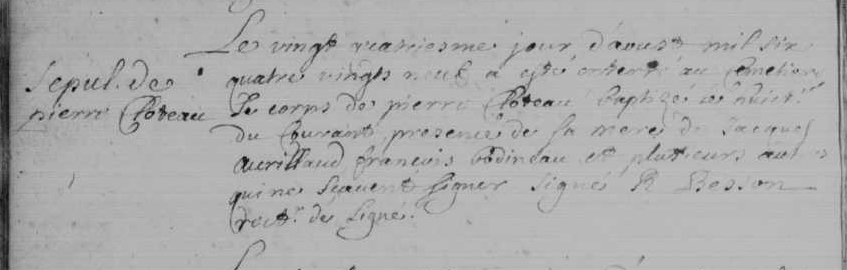 Le vingt quatriesme jour d'aoust mil six
Sepul. de
pierre Cloteau
quatre vingts neuf a esté enterré au Cemetiere
le corps de pierre Cloteau baptizé le huict.
du Courant, presence de sa mere de Jacques
aurillaud françois bodineau et plusieurs autres
qui ne scavent signer signé R Besson
rect.r de Signé.